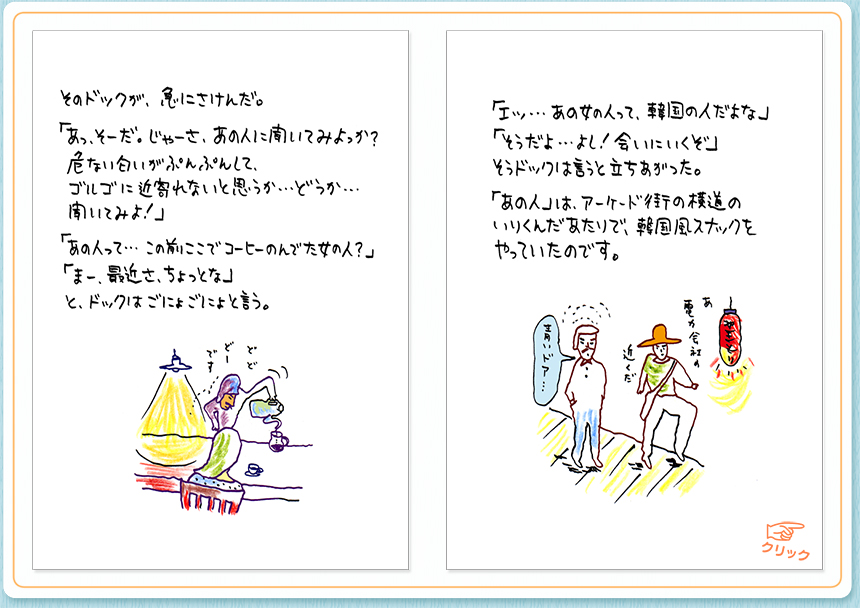 そのドックが、急にさけんだ。
「あっ、そーだ。じゃーさ、あの人に聞いてみよっか？
危ない匂いがぷんぷんして、
ゴルゴに近寄れないと思うか…どうか…
聞いてみよ！」
「あの人って… この前ここでコーヒーのんでた女の人？」
「まー、最近さ、ちょっとな」
と、ドックはごにょごにょと言う。
どど
どー
です
「エッ… あの女の人って、韓国の人だよな」
「そうだよ…よし！会いにいくぞ」
そうドックは言うと立ちあがった。
「あの人」は、アーケード街の横道の
いりくんだあたりで、韓国風スナックを
やっていたのです。
青いドアー…
近くだ
あ
電力会社の
クリック